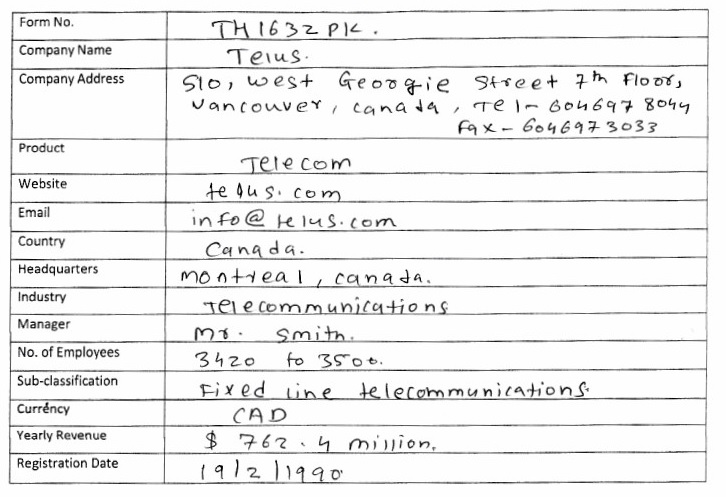 Form No. TH1632PK.
Company Name Telus.
Company Address 510, west Georgie Street 7th Floor,
Vancouver, Canada, Tel- 6046978044
Fax - 6046973033
Product Telecom
Website telus.com
Email info@telus.com
Country Canada.
Headquarters montreal, canada.
Industry Telecommunications
Manager Mr. Smith.
No. of Employees 3420 to 3500.
Sub-classification Fixed line telecommunications.
Currency CAD
Yearly Revenue $ 762.4 million.
Registration Date 19/2/1990